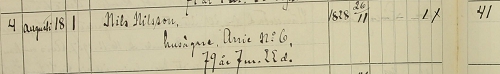 4 augusti 18 1 Nils Nilsson, 1828 26/11 1 41
husägare, Arrie No 6,
79 år 7 m. 22 d.